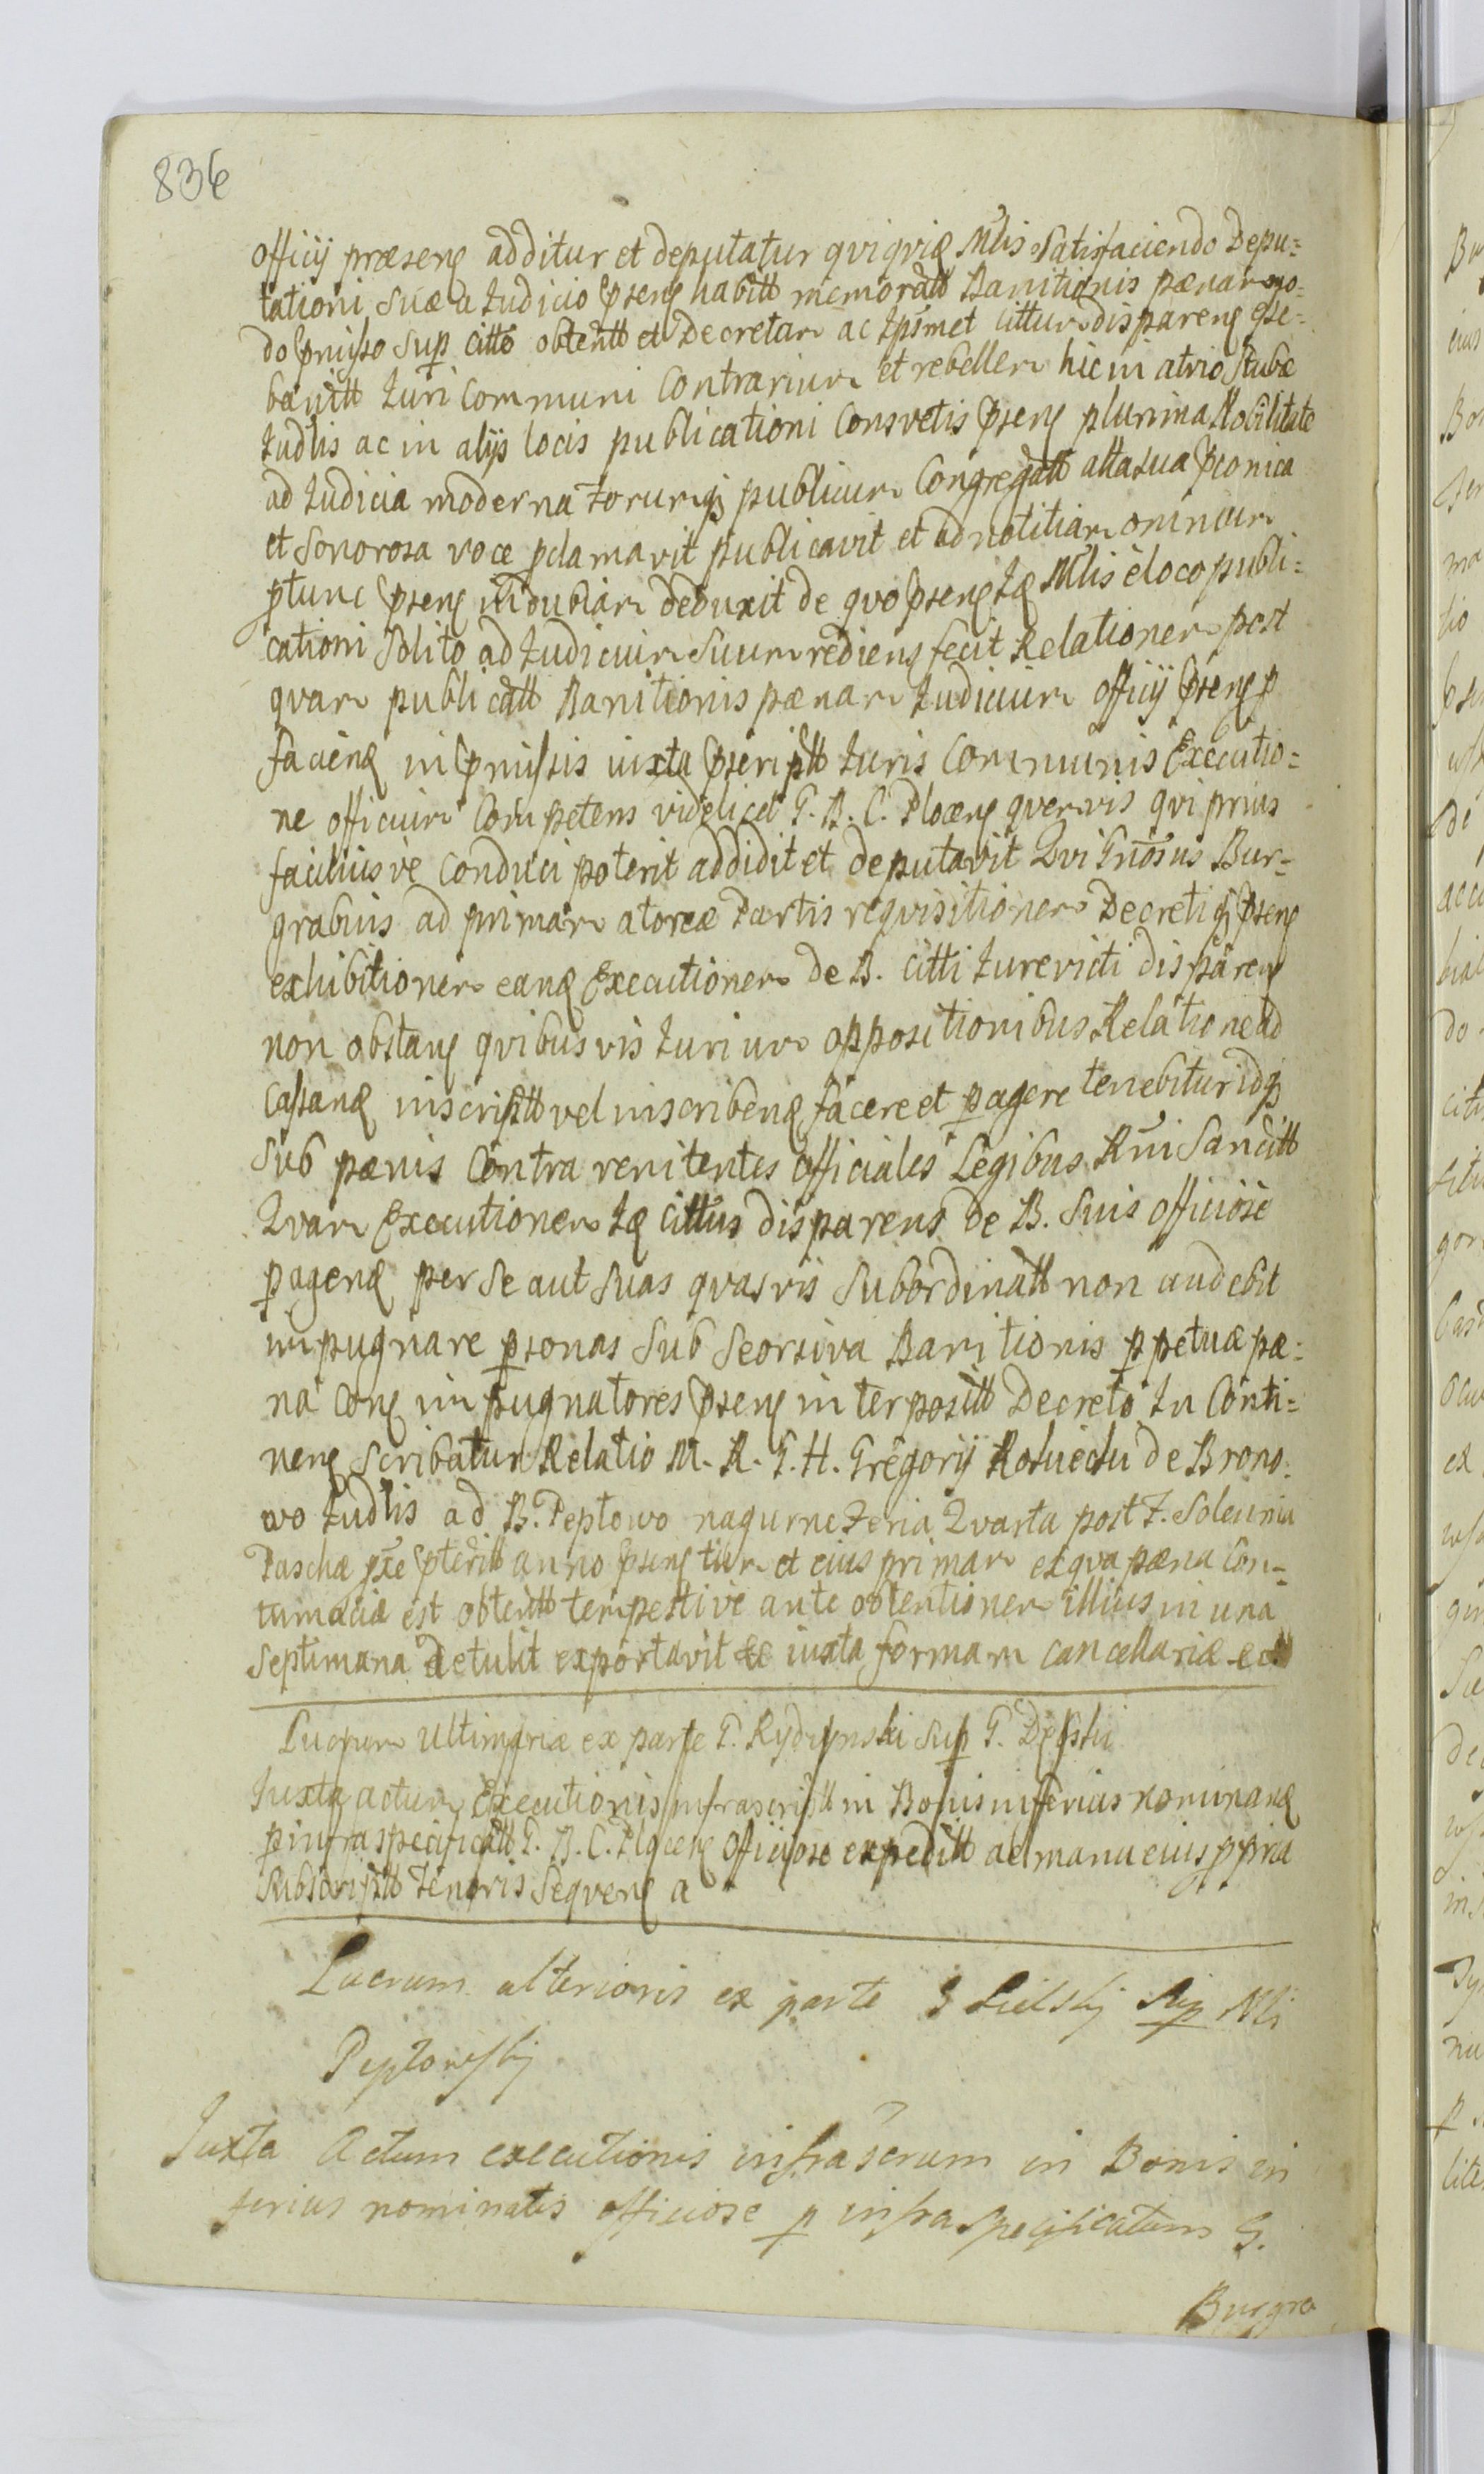 836
officij præsenꝭ additur et deputatur qviqvidꝫ Mlis Satisfaciendo Depu=
tationi Suæ a Iudicio Pꝛsenꝭ habitt memoratt Banitionis pænam mo=
do Pꝛmisso Sup citto obtentt et Decretam ac Ipsmet cittum disparenꝭ
banitt Iuri Communi Contrarium et rebellem hic in atrio Stubæ
Iudlis ac in alijs locis publicationi Consvetis Pꝛsenꝭ plurima Nobilitate
ad Iudicia moderna Forumqꝫ publicum Congregatt alta sua
et Sonorosa voce pclamavit publicavit et ad notitiam omnium
ptunc Pꝛsenꝭ indubiam deduxit de qvo Pꝛsenꝭ Idꝫ Mlis e loco publi=
cationi Solito ad Iudicium Suum rediens fecit Relationem post
qvam publicatt Banitionis pænam Iudicium officij Pꝛsenꝭ p
faciendꝫ in Pꝛmissis iuxta Pꝛscriptt Iuris Communis Executio=
ne officium Competens videlicet G. B. C. Plocenꝭ qvemvis qvi prius
faciliusve Conduci poterit addidit et deputavit Qvi Gnosus Bur=
grabius ad primam atoreæ Partis reqvisitionem Decretiqꝫ Pꝛsenꝭ
exhibitionem eandꝫ Executionem de B. citti Iurevicti disparenꝭ
non obstanꝭ qvibusvis Iurium oppositionibus Relatione ad
Cassandꝫ inscriptt vel inscribendꝫ facere et pagere tenebitur idqꝫ
Sub pænis Contra renitentes officiales Legibus Rni Sancitt
Qvam Executionem Idꝫ cittus disparens de B. Suis officiose
pagendꝫ per Se aut Suas qvasvis Subordinatt non audebit
impugnare psonas Sub Seorsiva Banitionis ppetuæ pæ=
na Conꝭ impugnatores Pꝛsenꝭ interpositt Decreto In Conti=
nenꝭ Scribatur Relatio M. R. G. H. Gregorij de Brono=
wo Iudlis ad B. Peptowo Feria Qvarta post F. Solennia
Paschæ Pꝛteritt anno Pꝛsenꝭ tium et eius primam ex qva pæna Con=
tumaciæ est obtentt tempestive ante obtentionem illius in una
Septimana detulit exportavit &c iuxta formam cancellariæ
Lucrum Ultimariæ ex parte G. Rydzynski Sup G. Dępski
Iuxta actum Executionis infrascriptt in Bonis inferius nominandꝫ
p infra specificatt G. B. C. Plocenꝭ Officiose expeditt ac manu eius ppria
Subscriptt Tenoris Seqvenꝭ a
Lucrum ulterioris ex parte G Lielskij Sup Nli
Peptowskij
Iuxta Actum executionis infrascrum in Bonis in
ferius nominatis officiose p infra Specificatum G.
Burgra